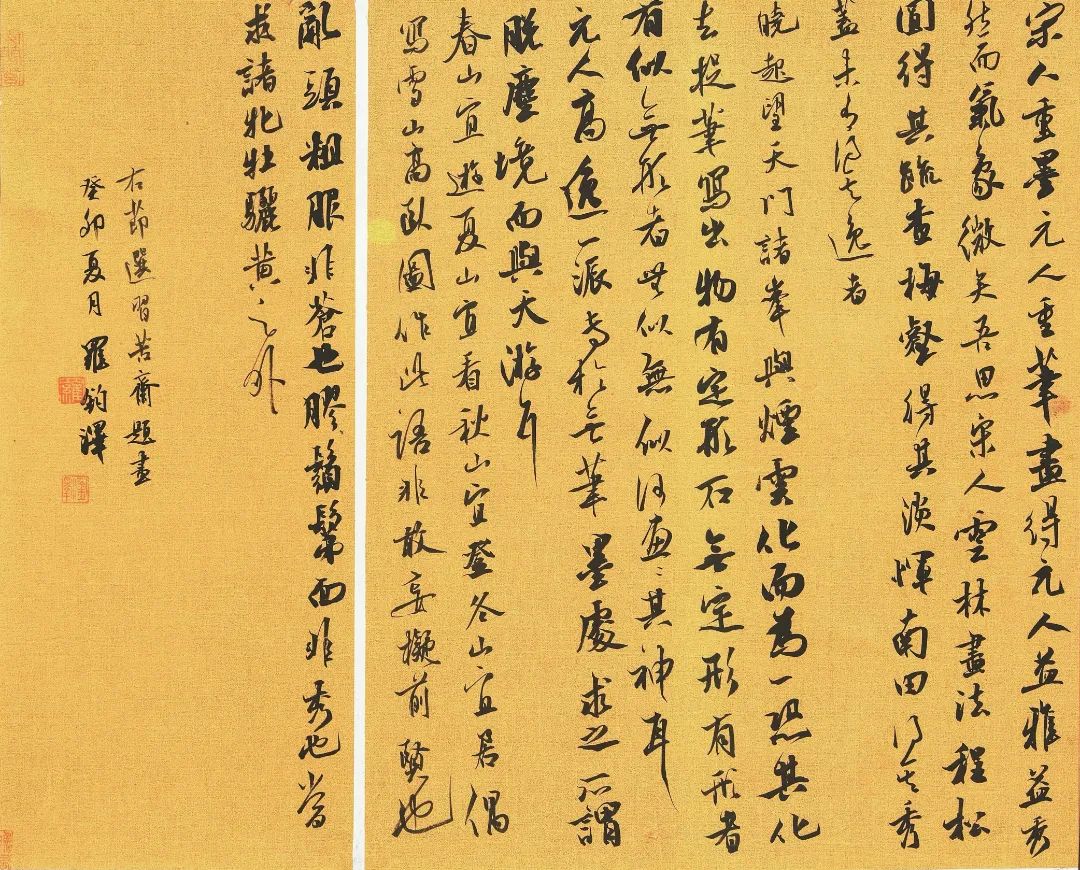 宋人重墨元人重筆畫得元人益雅益秀
然而氣象微矣吾思宋人雲林畫法程松
圓得其疏查梅壑得其淡惲南田得其秀
蓋未有得其逸者
曉起望天門諸峯與煙雲化而為一恐其化
去捉筆寫出物有定形石無定形有形者
有似無形者無似無似何畫〻其神耳
元人高逸一派專於無筆墨處求之所謂
脫塵境而與天游耳
春山宜遊夏山宜看秋山宜登冬山宜居偶
寫雪山高臥圖作此語非敢妄擬前賢也
亂頭粗服非蒼也膠鬚鬀面非秀也當
求諸牝牡驪黃之外
右節選習苦齋題畫
癸卯夏月羅鈞澤